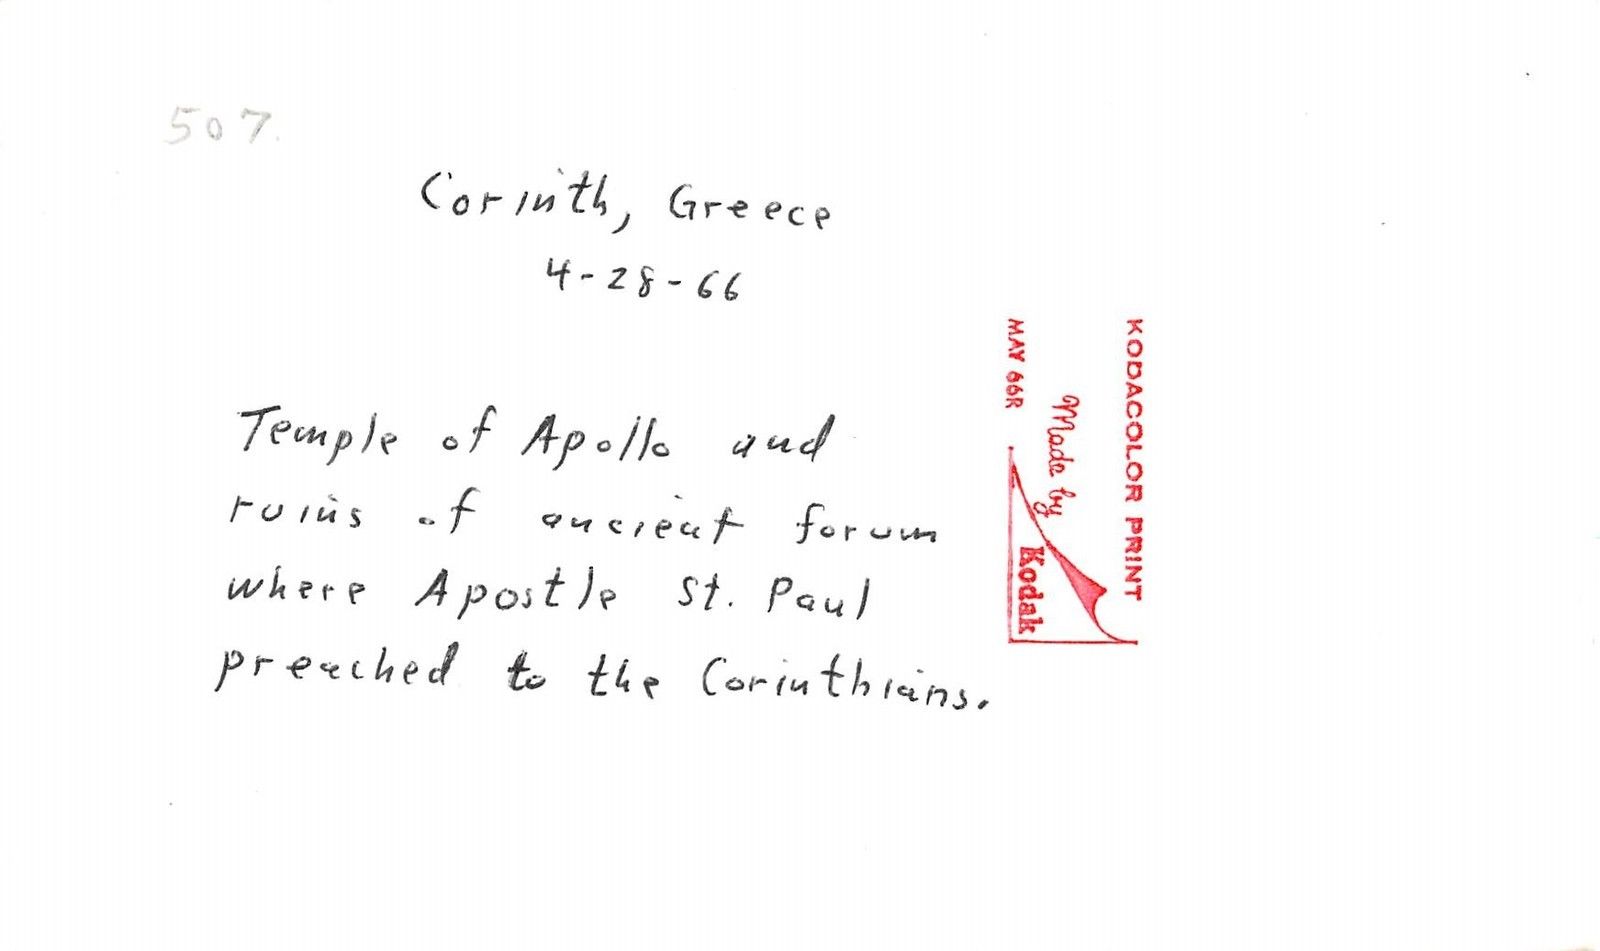 507.
Corinth, Greece
4-28-66
Temple of Apollo and
ruins of ancient forum
where Apostle St. Paul
preached to the Corinthians.
KODACOLOR PRINT
Made by
Kodak
MAY 66R